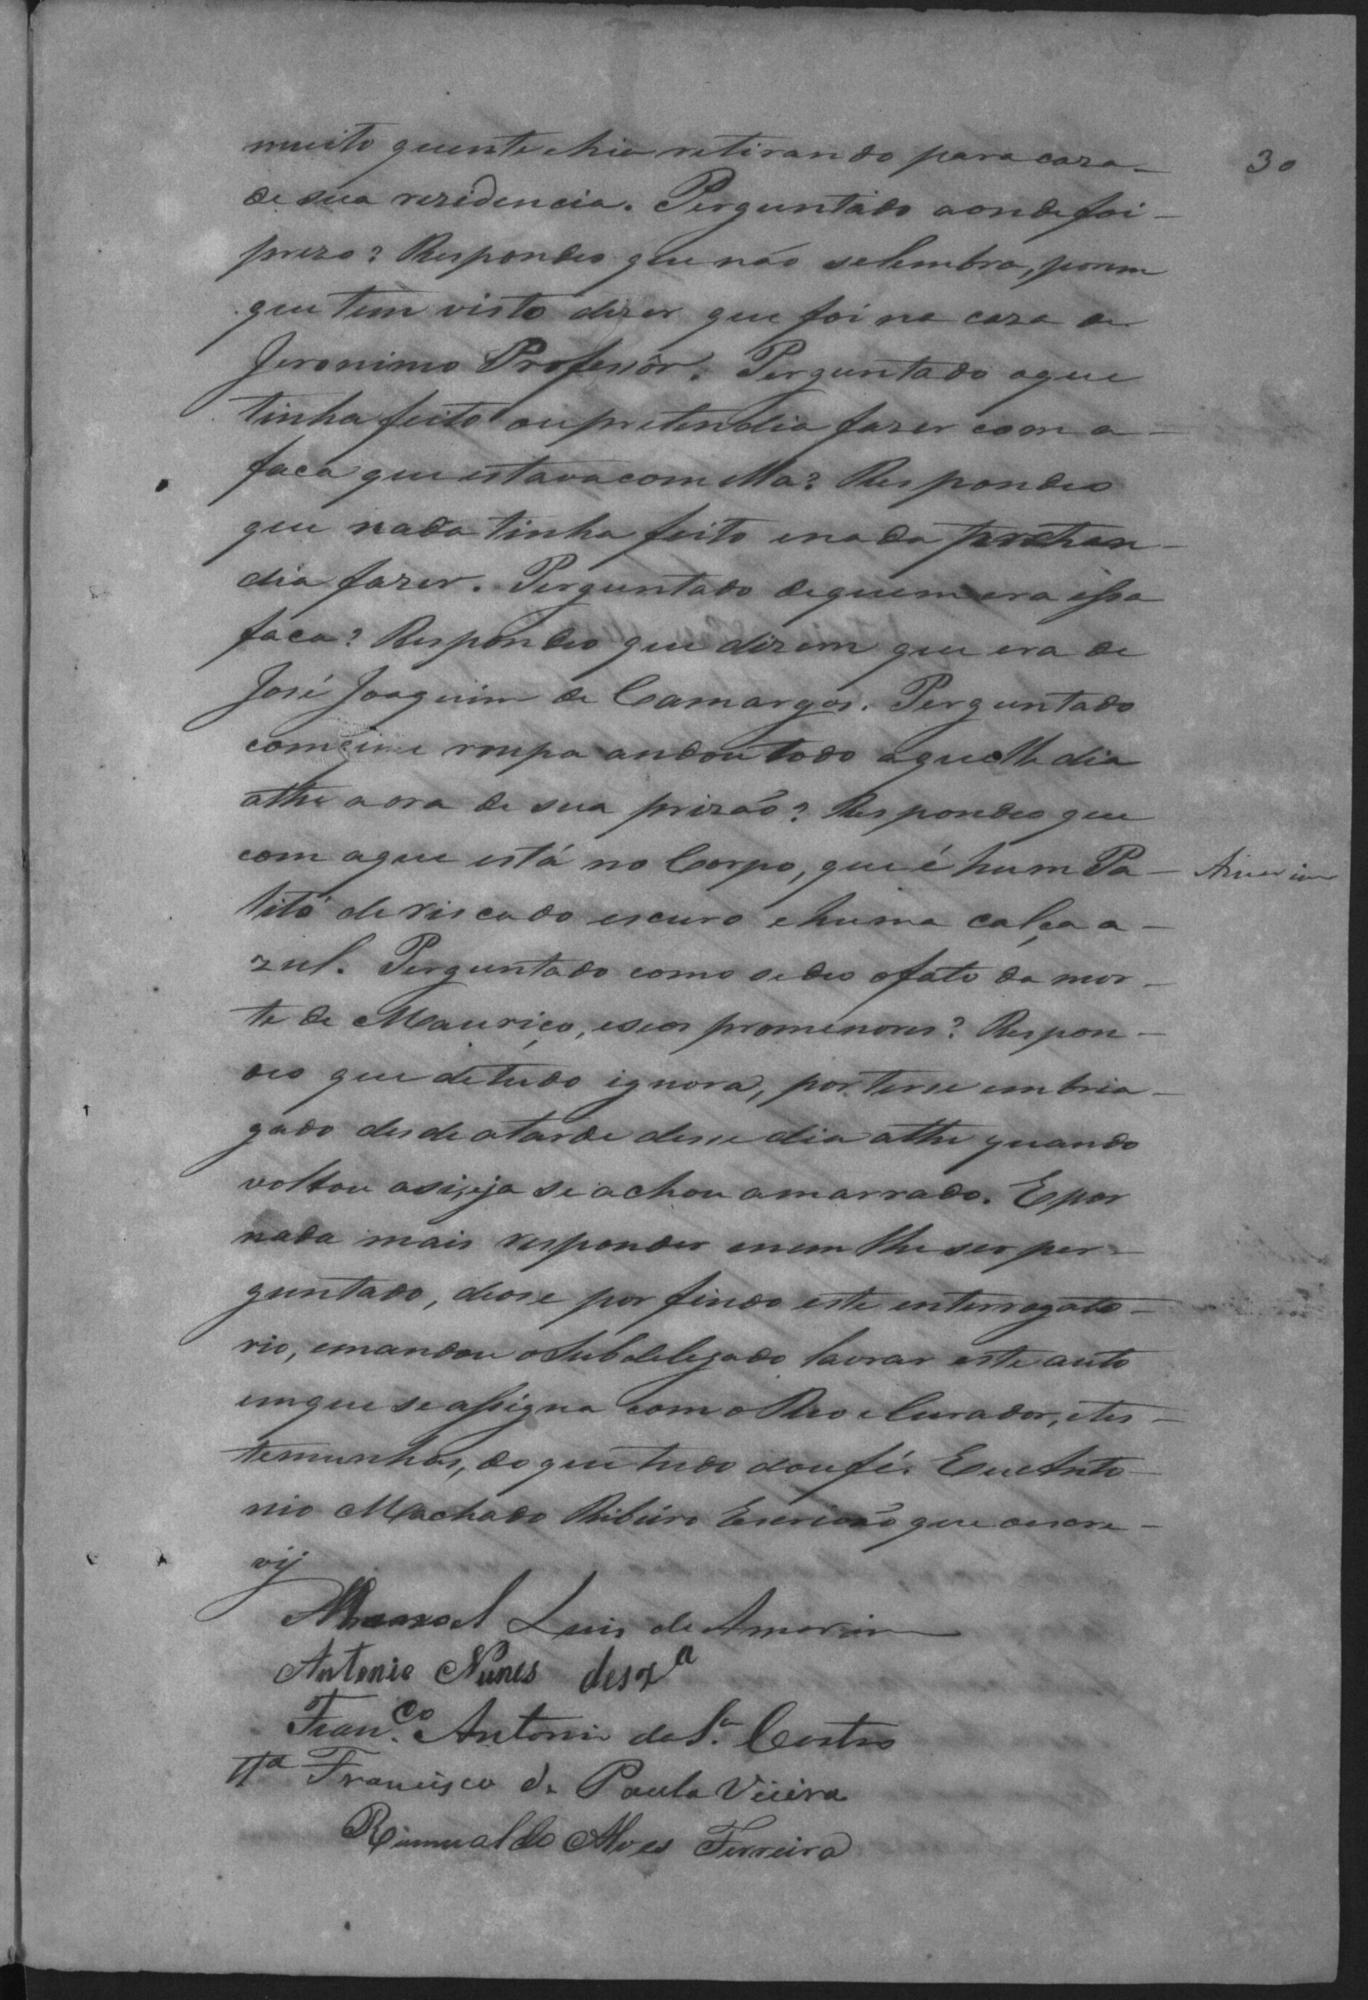 30
muito quente e hia retirando para caza
de sua rezidencia. Perguntado aonde foi
prezo? Respondeo que não se lembra, porem
que tem visto dizer que foi na caza de
Jeronimo Professôr. Perguntado o que
tinha feito ou pretendia fazer com a
faca que estava com ella? Respondeo
que nada tinha feito e nada pretan-
dia fazer. Perguntado de quem era essa
faca? Respondeo que dizem que era de
José Joaquim de Camargos. Perguntado
com roupa andou todo aquelle dia
athe a ora de sua prizão? Respondeo que
com a que está no Corpo, que é hum Pa-
litó de riscado escuro e huma calça a-
zul. Perguntado como se deo o fato da mor-
te de Mauriço, e seos promenores? Respon-
deo que de tudo ignora, por terse embria-
gado desde a tarde desse dia athe quando
voltou a si, e ja se achou amarrado. E por
nada mais responder e nem lhe ser per-
guntado, deose por findo este enterrogato-
rio, e mandou o Subdelegado lavrar este auto
em que se assigna com o Reo e Curador, e tes-
temunhas, do que tudo dou fé. Eu Anto-
nio Machado Ribeiro Escrivão que o escre-
vij
Manoel Luis de Amorim
Antonio Nunes desxª
Fran.co Antonio da S.a Castro
Ttª Francisco de Paula Vieira
Rumualdo Alves Ferreira
Amorim